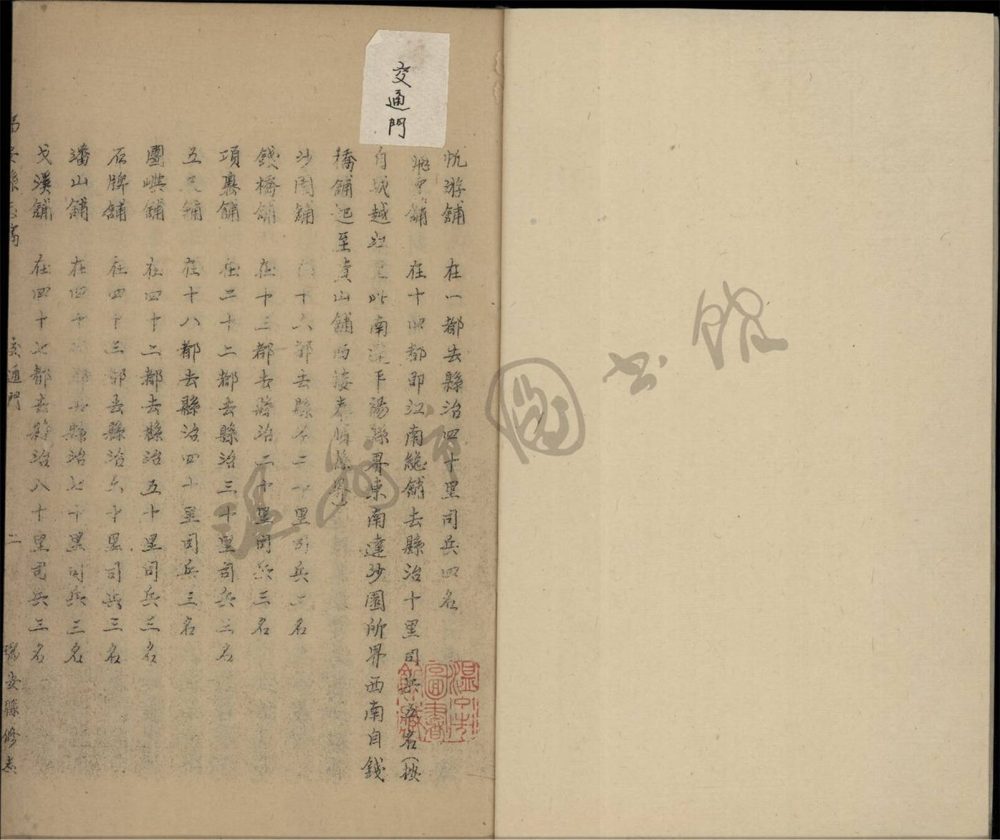 交通門
帆游舖 在一都去縣治四十里司兵四名
飛雲舖 在十四都即江南總舖去縣治十里司兵五名(按
自城越江南平陽縣界東南達沙園所界西南自錢
橋舖起至責山舖西
沙園舖 十六都去縣二十里司兵三名
錢橋舖 在十三都去縣治二十里司兵三名
項岙舖 在二十二都去縣治三十里司兵三名
五舖 在十八都去縣治四十里司兵三名
圕嶼舖 在四十二都去縣治五十里司兵三名
石牌舖 在四十三都去縣治六十里司兵三名
潘山舖 在四十都去縣治七十里司兵三名
戈溪舖 在四十七都去縣治八十里司兵三名
交通門 二 瑞安縣修志
溫州市圖書館
溫州市圖書館藏